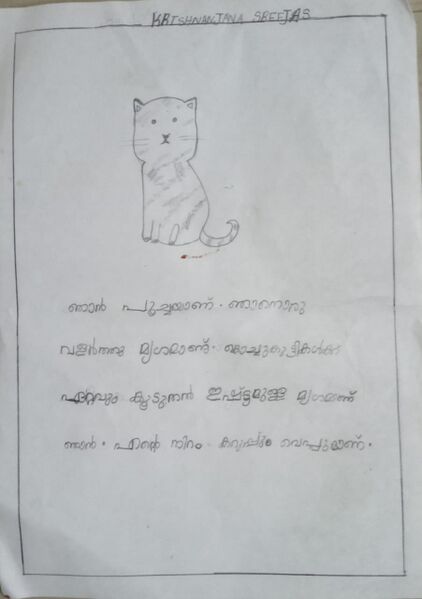 KRISHNANJANA SREEJAS
ഞാൻ പൂച്ചയാണ്. ഞാനൊരു
വളർത്തു മൃഗമാണ്. കൊച്ചുകുട്ടികൾക്ക്
ഏറ്റവും കൂടുതൽ ഇഷ്ട്ടമുള്ള മൃഗമാണ്
ഞാൻ. എന്റെ നിറം കറുപ്പും വെളുപ്പുമാണ്.